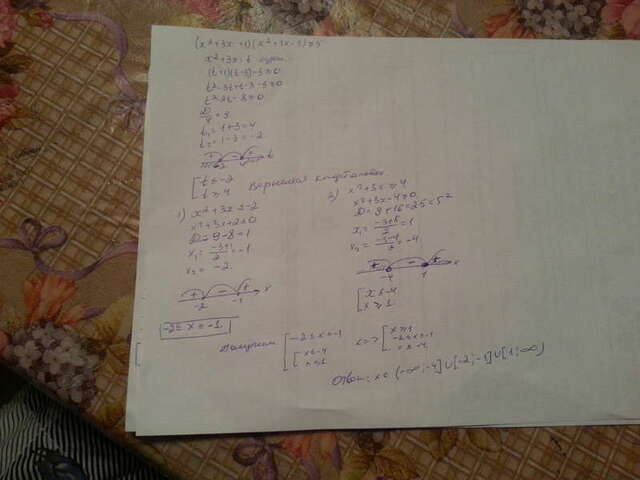 (x²+3x+1)(x²+3x-3)≥5
x²+3x=t
(t+1)(t-3)-5≥0
t²-3t+t-3-5≥0
t²-2t-8≥0
D/4=9
t₁=1+3=4
t₂=1-3=-2
+ - + t
[t≤-2
t≥4
Вернёмся к
1) x²+3x≤-2
x²+3x+2≤0
D=9-8=1
x₁=(-3+1)/2=-1
x₂=-2
+ - + x
-2 -1
-2≤x≤-1
2) x²+3x≥4
x²+3x-4≥0
D=9+16=25=5²
x₁=(-3+5)/2=1
x₂=(-3-5)/2=-4
+ - + x
-4 1
[x≤-4
x≥1
Получим [-2≤x≤-1
[x≤-4
x≥1
<=> [x≥1
-2≤x≤-1
x≤-4
Ответ: x∈(-∞;-4]∪[-2;-1]∪[1;∞)